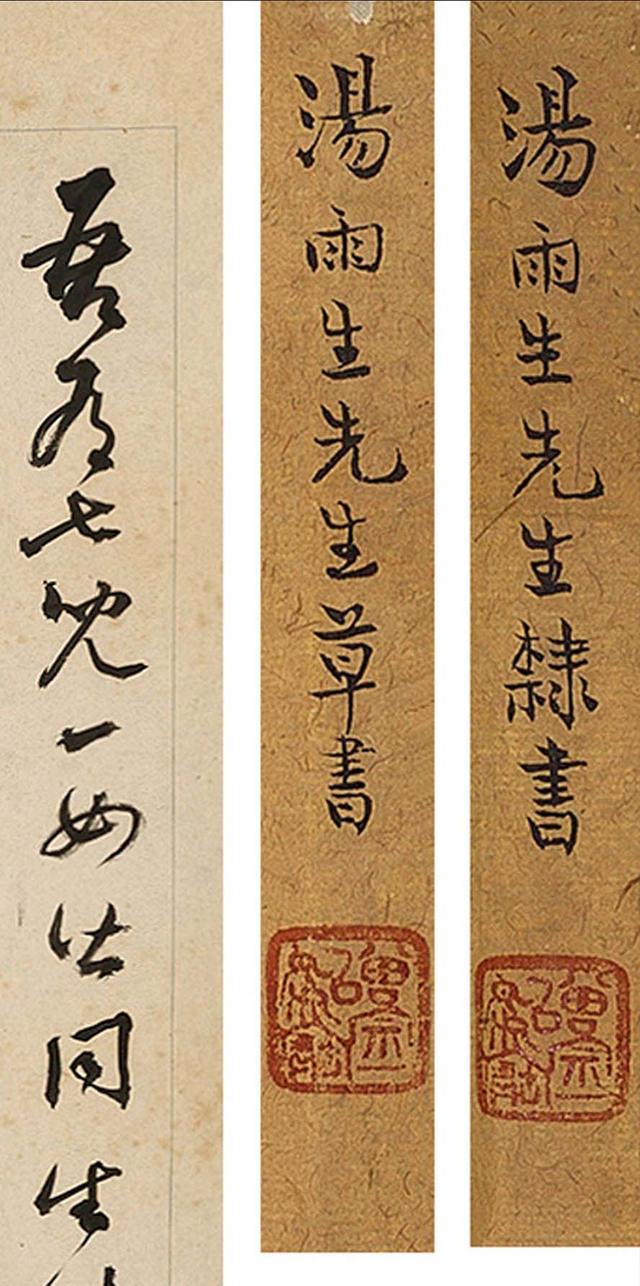 湯雨生先生隸書
湯雨生先生草書
吾有七兒一女皆同生